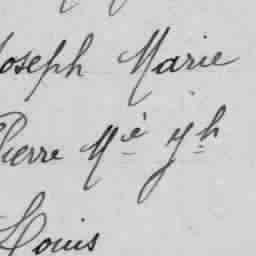 Joseph Marie
Pierre Mie Jh
Louis